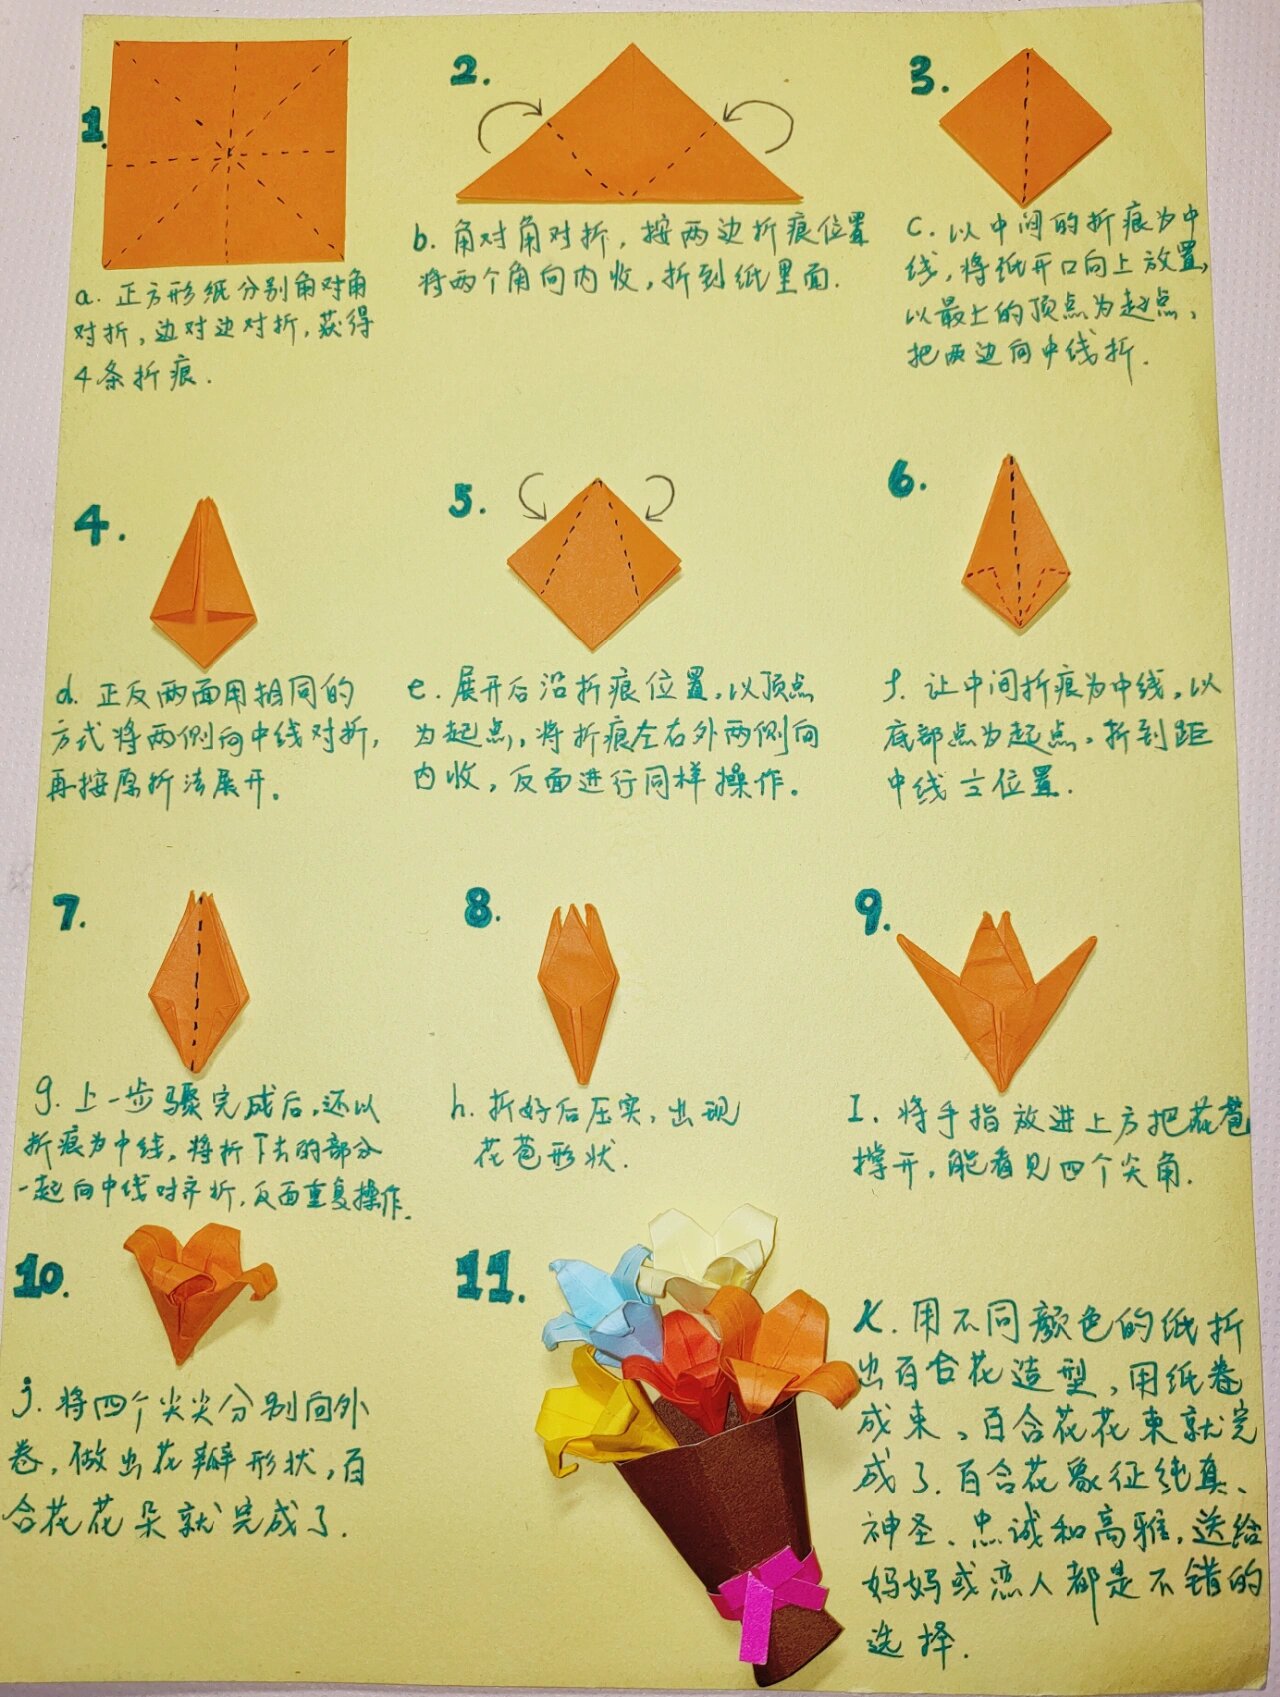 1.
a. 正方形纸分别角对角
对折，边对边对折，获得
4条折痕.
2.
b. 角对角对折，按两边折痕位置
将两个角向内收，折到纸里面.
3.
c. 以中间的折痕为中
线，将纸开口向上放置，
以最上的顶点为起点，
把两边向中线折.
4.
d. 正反两面用相同的
方式将两侧向中线对折，
再按原折法展开。
5.
e. 展开后沿折痕位置，以顶点
为起点，将折痕左右外两侧向
内收，反面进行同样操作。
6.
f. 让中间折痕为中线，以
底部点为起点，折到距
中线 位置.
7.
g. 上一步骤完成后，还以
折痕为中线，将折下去的部分
一起向中线对齐折，反面重复操作.
8.
h. 折好后压实，出现
花苞形状.
9.
I. 将手指放进上方把花苞
撑开，能看见四个尖角.
10.
j. 将四个尖尖分别向外
卷，做出花瓣形状，百
合花花朵就完成了.
11.
K. 用不同颜色的纸折
出百合花造型，用纸卷
成束，百合花花束就完
成了.百合花象征纯真、
神圣、忠诚和高雅，送给
妈妈或恋人都是不错的
选择.